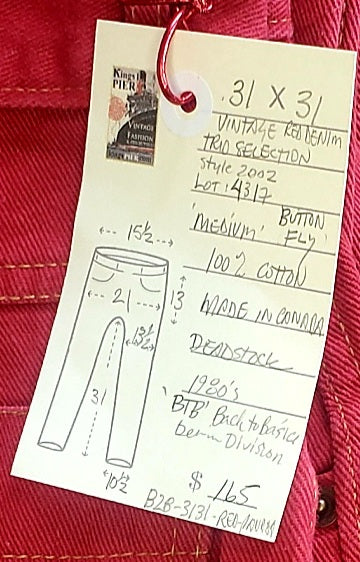 Kings
PIER
VINTAGE
FASHION
.31 X 31
VINTAGE RED DENIM
TRIO SELECTION
Style 2002
LOT: 4317
'MEDIUM' BUTTON
FLY
100% COTTON
MADE IN CANADA
DEADSTOCK
1980's
'BTB' Back to Basics
Division
$ 165
B2B-3131-RED-
15½
21
13
13½
31
10½